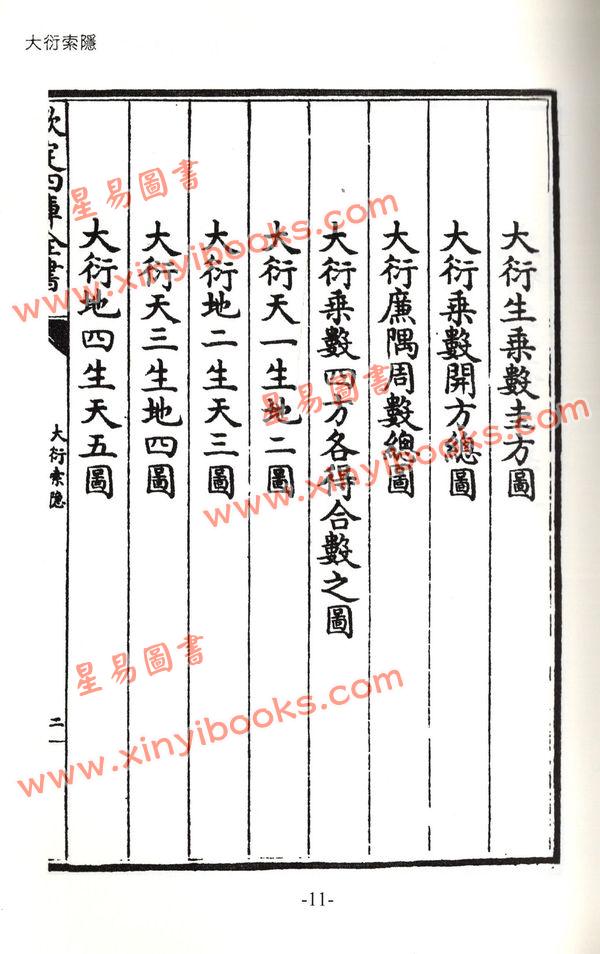 大衍索隱
大衍生乘數圭方圖
大衍乘數開方總圖
大衍廉隅周數總圖
大衍乘數四方各得合數之圖
大衍天一生地二圖
大衍地二生天三圖
大衍天三生地四圖
大衍地四生天五圖
欽定四庫全書
大衍索隱
二
-11-
星易圖書
www.xinyibooks.com
星易圖書
www.xinyibooks.com
星易圖書
www.xinyibooks.com